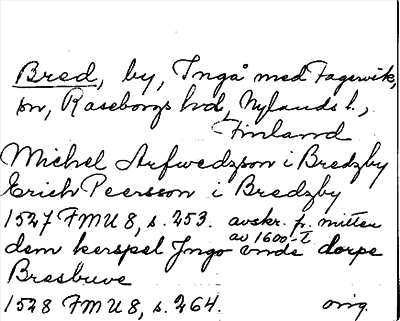 Bred, by, Ingå med Fagervik,
sn, Raseborgs hd, Nylands l.,
Finland
Michel Arfwedzson i Bredzby
Erich Peersson i Bredzby
1527 FMU 8, s. 253. avskr. fr. mitten
av 1600-t.
dem kerspel Jngo vnde dorpe
Bresbuve
1528 FMU 8, s. 264. orig.